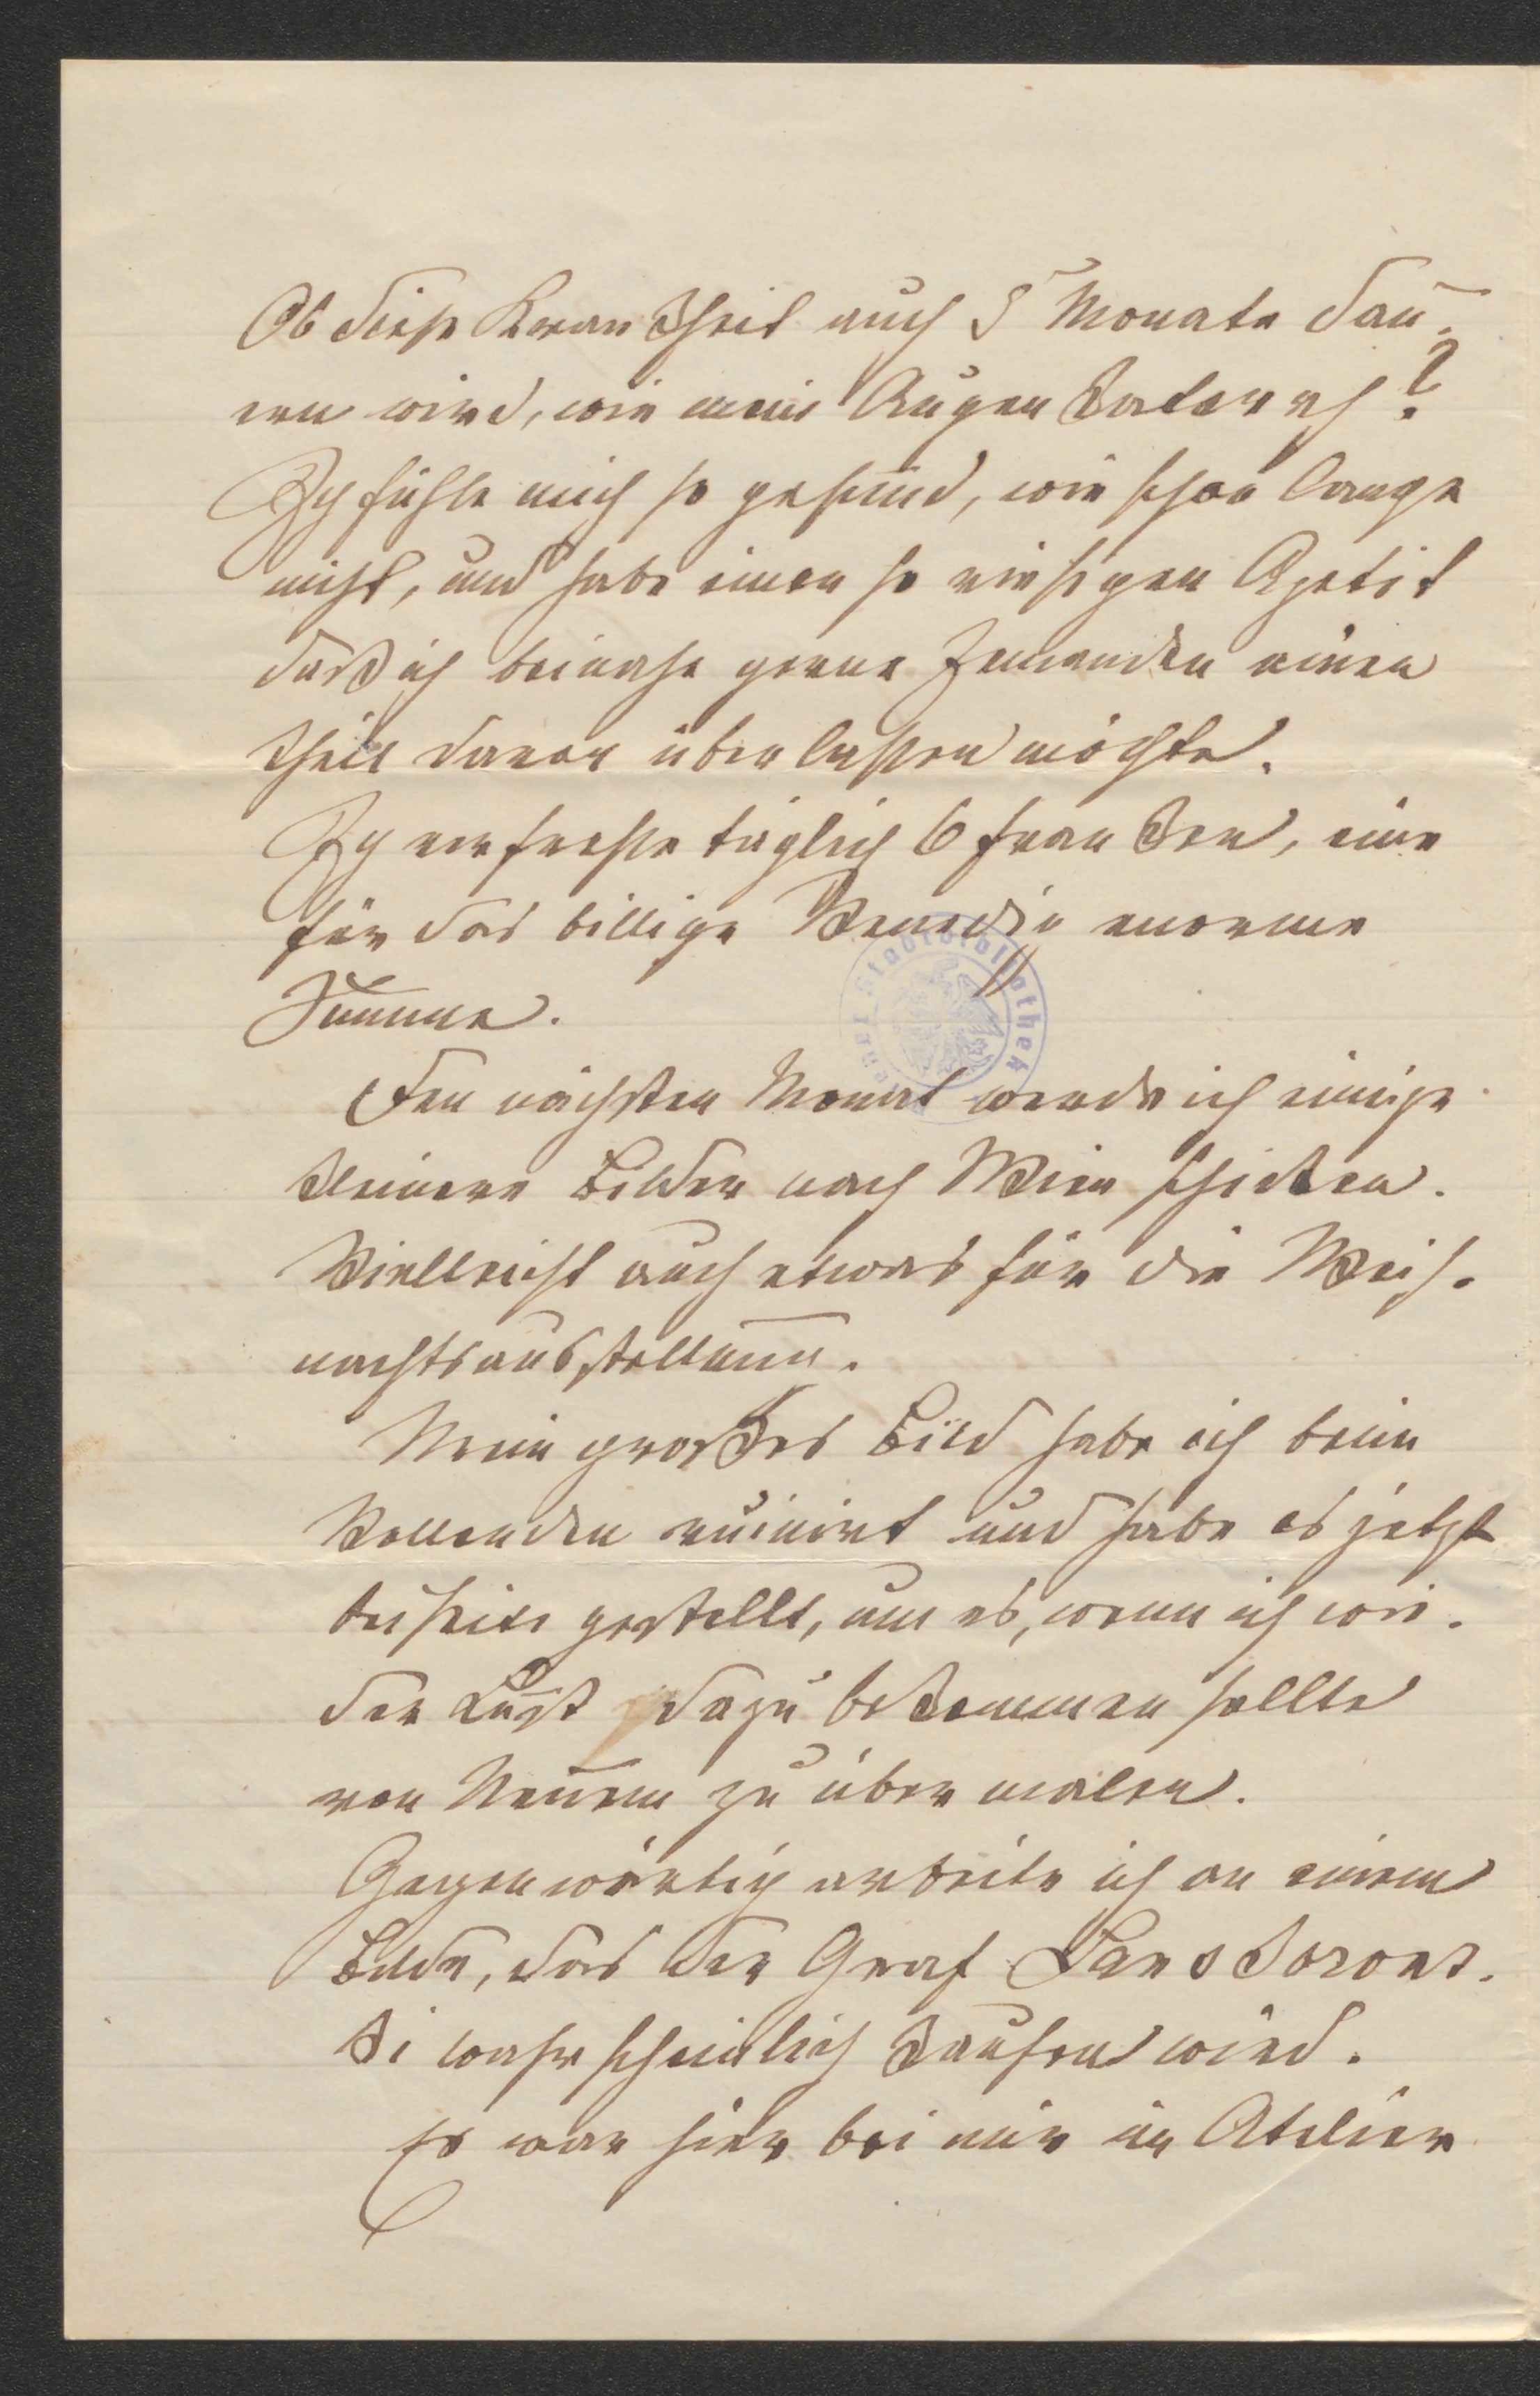 Ob diese Krankheit auch 5 Monate dau-
ern wird, wie mein Augenkatarrh?
Ich fühle mich so gesund, wie schon lange
nicht, und habe einen so riesigen Apetit
daß ich beinahe gerne Jemanden einen
Theil davon überlassen möchte.
Ich verfresse täglich 6 franken, eine
für das billige Venedig enorme
Summe.
Den nächsten Monat werde ich einige
kleinere Bilder nach Wien schicken.
Vielleicht auch etwas für die Weih-
nachtsausstellung.
Mein großes Bild habe ich beim
Vollenden ruinirt und habe es jetzt
bei seite gestellt, um es, wenn ich wie-
der Lust dazu bekommen sollte
von Neuem zu übermalen.
Gegenwärtig arbeite ich an einem
Bilde, das der Graf Lanskorons-
ki wahrscheinlich kaufen wird.
Er war hier bei mir im Atelier
Stadtbibliothek